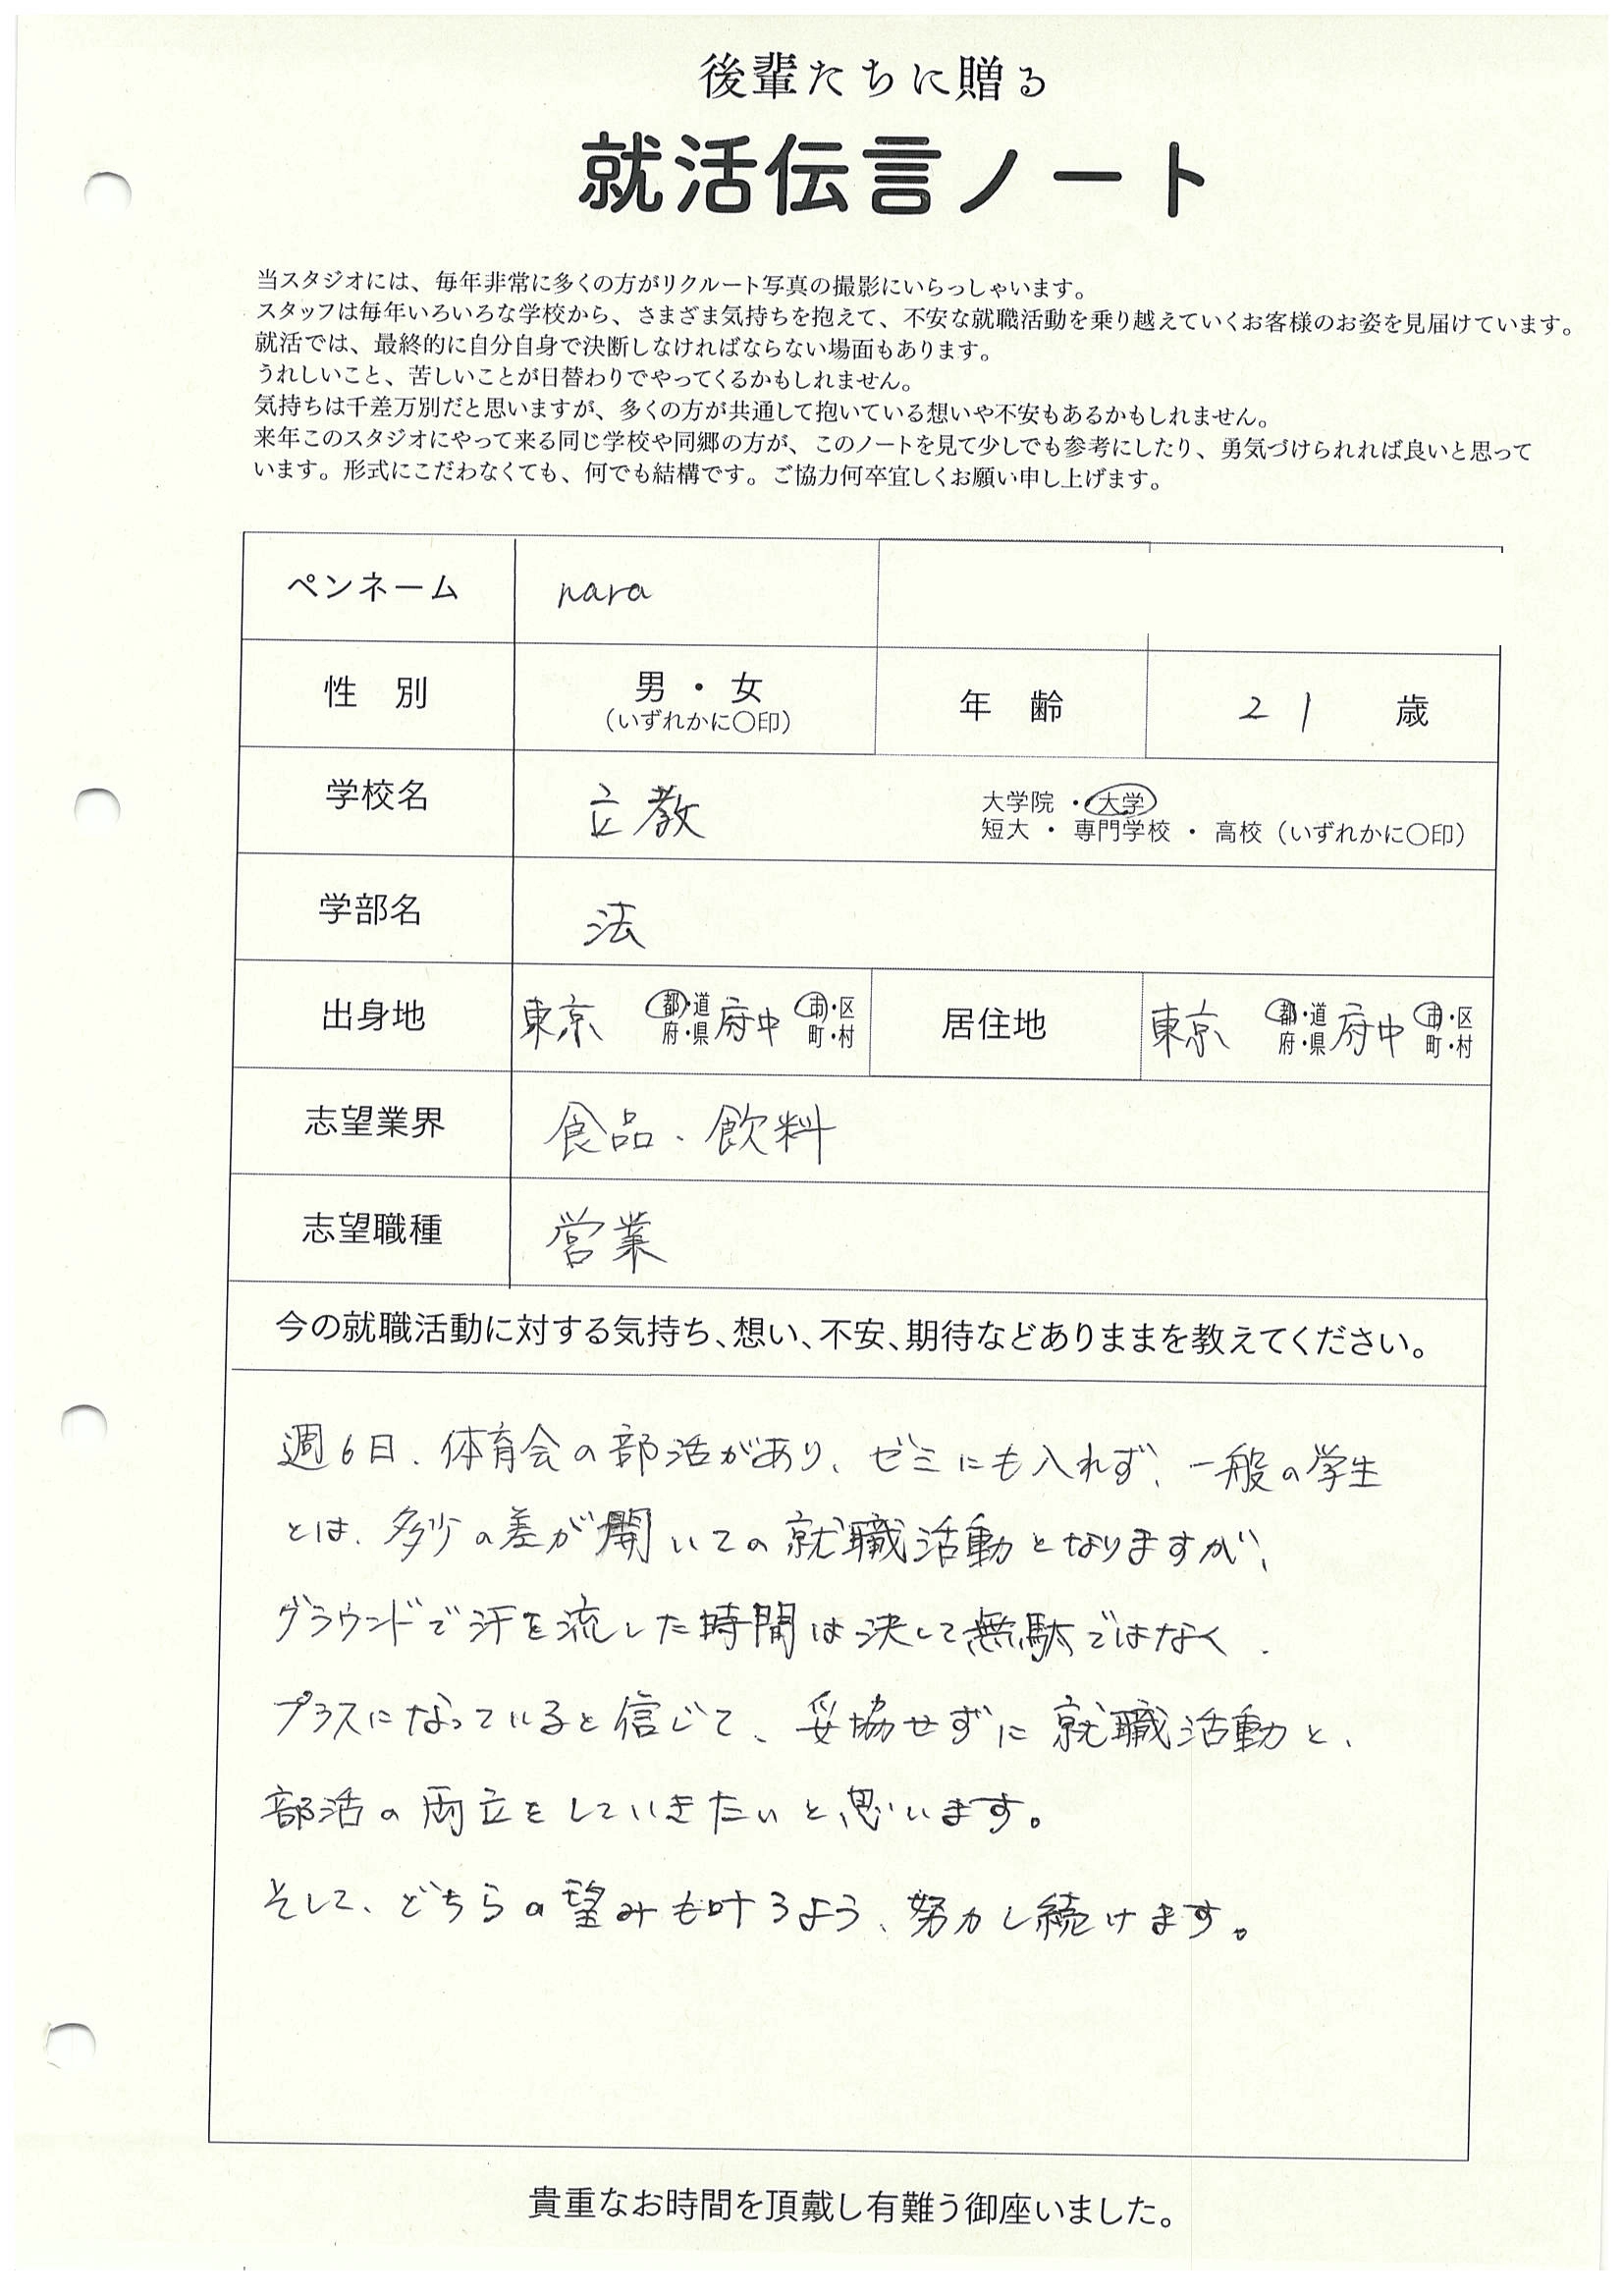 後輩たちに贈る
就活伝言ノート
当スタジオには、毎年非常に多くの方がリクルート写真の撮影にいらっしゃいます。
スタッフは毎年いろいろな学校から、さまざま気持ちを抱えて、不安な就職活動を乗り越えていくお客様のお姿を見届けています。
就活では、最終的に自分自身で決断しなければならない場面もあります。
うれしいこと、苦しいことが日替わりでやってくるかもしれません。
気持ちは千差万別だと思いますが、多くの方が共通して抱いている想いや不安もあるかもしれません。
来年このスタジオにやって来る同じ学校や同郷の方が、このノートを見て少しでも参考にしたり、勇気づけられれば良いと思って
います。形式にこだわなくても、何でも結構です。ご協力何卒宜しくお願い申し上げます。
ペンネーム nara
性 別 男 ・ 女 年 齢 21 歳
(いずれかに〇印)
学校名 立教 大学院 ・ 大学
短大 ・ 専門学校 ・ 高校 (いずれかに〇印)
学部名 法
出身地 東京 都・道 府中 市・区 居住地 東京 都・道 府中 市・区
府・県 町・村 府・県 町・村
志望業界 食品・飲料
志望職種 営業
今の就職活動に対する気持ち、想い、不安、期待などありままを教えてください。
週6日、体育会の部活があり、ゼミにも入れず、一般の学生
とは、多少の差が開いての就職活動となりますが、
グラウンドで汗を流した時間は決して無駄ではなく、
プラスになっていると信じて、妥協せずに就職活動と、
部活の両立をしていきたいと思います。
そして、どちらの望みも叶うよう、努力し続けます。
貴重なお時間を頂戴し有難う御座いました。